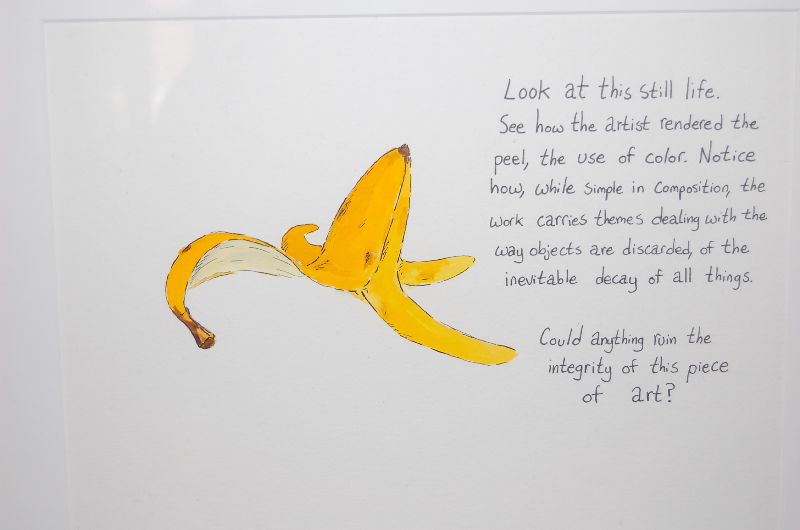 Look at this still life.
See how the artist rendered the
peel, the use of color. Notice
how, while simple in composition, the
work carries themes dealing with the
way objects are discarded, of the
inevitable decay of all things.
Could anything ruin the
integrity of this piece
of art?